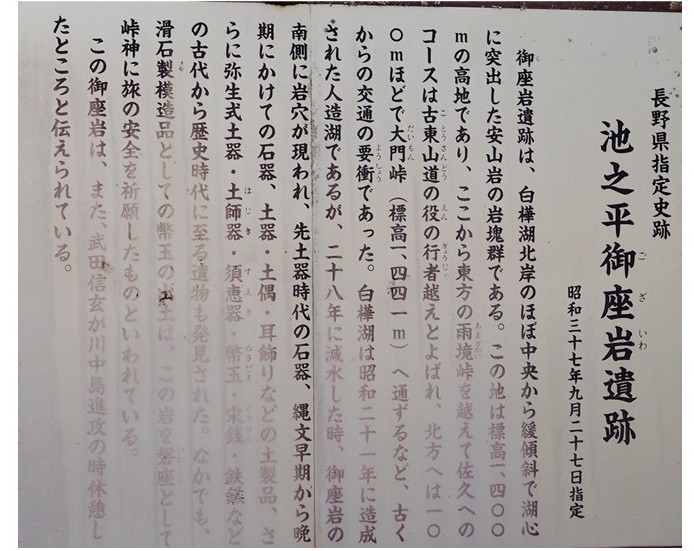 長野県指定史跡
池之平御座岩遺跡
昭和三十七年九月二十七日指定
御座岩遺跡は、白樺湖北岸のほぼ中央から緩傾斜で湖心
に突出した安山岩の岩塊群である。この地は標高一、四〇〇
mの高地であり、ここから東方の雨境峠を越えて佐久への
コースは古東山道の役の行者越えとよばれ、北方へは一〇
〇mほどで大門峠（標高一、四四一m）へ通ずるなど、古く
からの交通の要衝であった。白樺湖は昭和二十一年に造成
された人造湖であるが、二十八年に減水した時、御座岩の
南側に岩穴が現われ、先土器時代の石器、縄文早期から晩
期にかけての石器、土器・土偶・耳飾りなどの土製品、さ
らに弥生式土器・土師器・須恵器・幣玉・宋銭・鉄鏃など
の古代から歴史時代に至る遺物も発見された。なかでも、
滑石製模造品としての幣玉の出土は、この岩を磐座として
峠神に旅の安全を祈願したものといわれている。
この御座岩は、また、武田信玄が川中島進攻の時休憩し
たところと伝えられている。